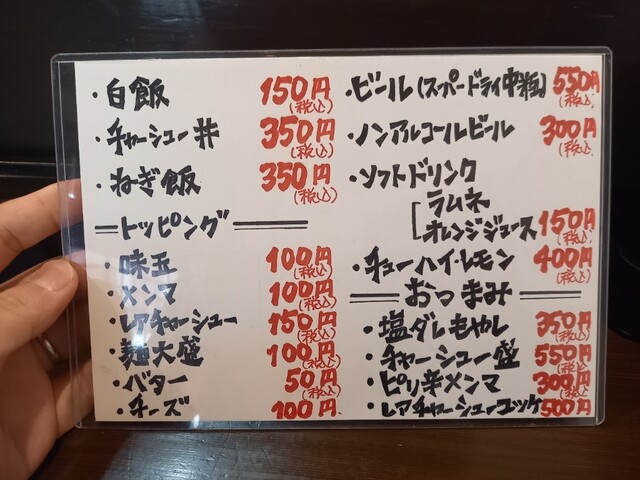 ・白飯 150円(税込)
・チャーシュー丼 350円(税込)
・ねぎ飯 350円(税込)
トッピング
・味玉 100円(税込)
・メンマ 100円(税込)
・レアチャーシュー 150円(税込)
・麺大盛 100円(税込)
・バター 50円(税込)
・チーズ 100円
・ビール(スーパードライ中瓶) 550円(税込)
・ノンアルコールビール 300円(税込)
・ソフトドリンク
ラムネ
オレンジジュース 150円(税込)
・チューハイレモン 400円(税込)
おつまみ
・塩ダレもやし 350円(税込)
・チャーシュー盛 550円(税込)
・ピリ辛メンマ 300円(税込)
・レアチャーシューユッケ 500円